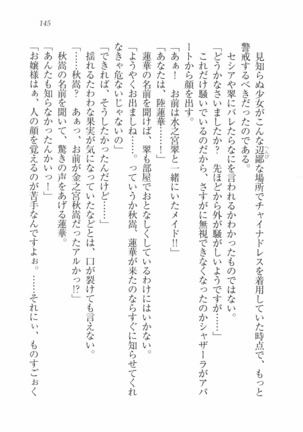 145
見知らぬ少女がこんな辺鄙な場所でチャイナドレスを着用していた時点で、もっと
警戒するべきだったのである。
セシアや翠にバレたらなにを言われるかわかったものではない。
「どうかなさいましたか？　先ほどから外が騒がしいようですが……」
これだけ騒いでいるのだから、さすがに無視できなくなったのかシャザーラがアパ
ートから顔を出す。
「あぁ！　お前は水之宮翠と一緒にいたメイド!!」
「あなたは、陸蓮華！」
蓮華の名前を聞けば、翠も部屋でおとなしくしているわけにはいかない。
「ようやくお出ましね……。っていうか秋嵩、蓮華が来たのならすぐに知らせてくれ
なきゃ危ないじゃないの」
「できれば、そうしたかったんだけど……」
揺れるたわわな果実が気になっていたなどとは、口が裂けても言えない。
「……秋嵩？　あぁっ、お前が金之宮秋嵩だったアルかっ!?」
秋嵩の名前を聞いて、驚きの声をあげる蓮華。
「あんたも知らなかったんかいっ！」
「お嬢様はぁ、人の顔を覚えるのが苦手なんですよぉ。……それにぃ、ものすごぉく